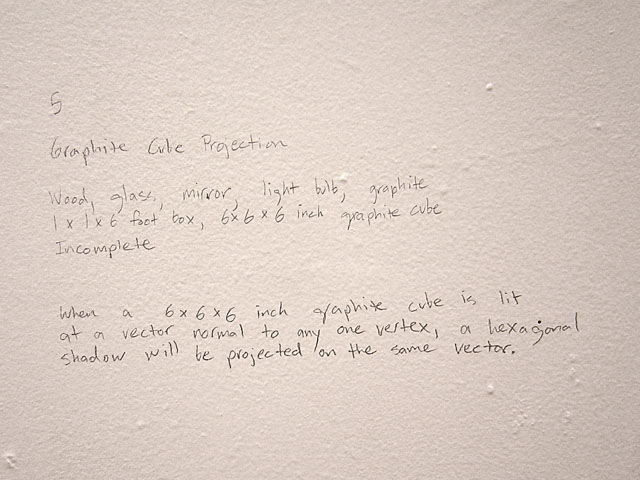 5
Graphite Cube Projection
Wood, glass, mirror, light bulb, graphite
1 x 1 x 6 foot box, 6 x 6 x 6 inch graphite cube
Incomplete
When a 6 x 6 x 6 inch graphite cube is lit
at a vector normal to any one vertex, a hexagonal
shadow will be projected on the same vector.